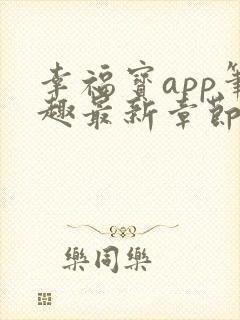 幸福寶app筆
趣最新章節
樂同樂